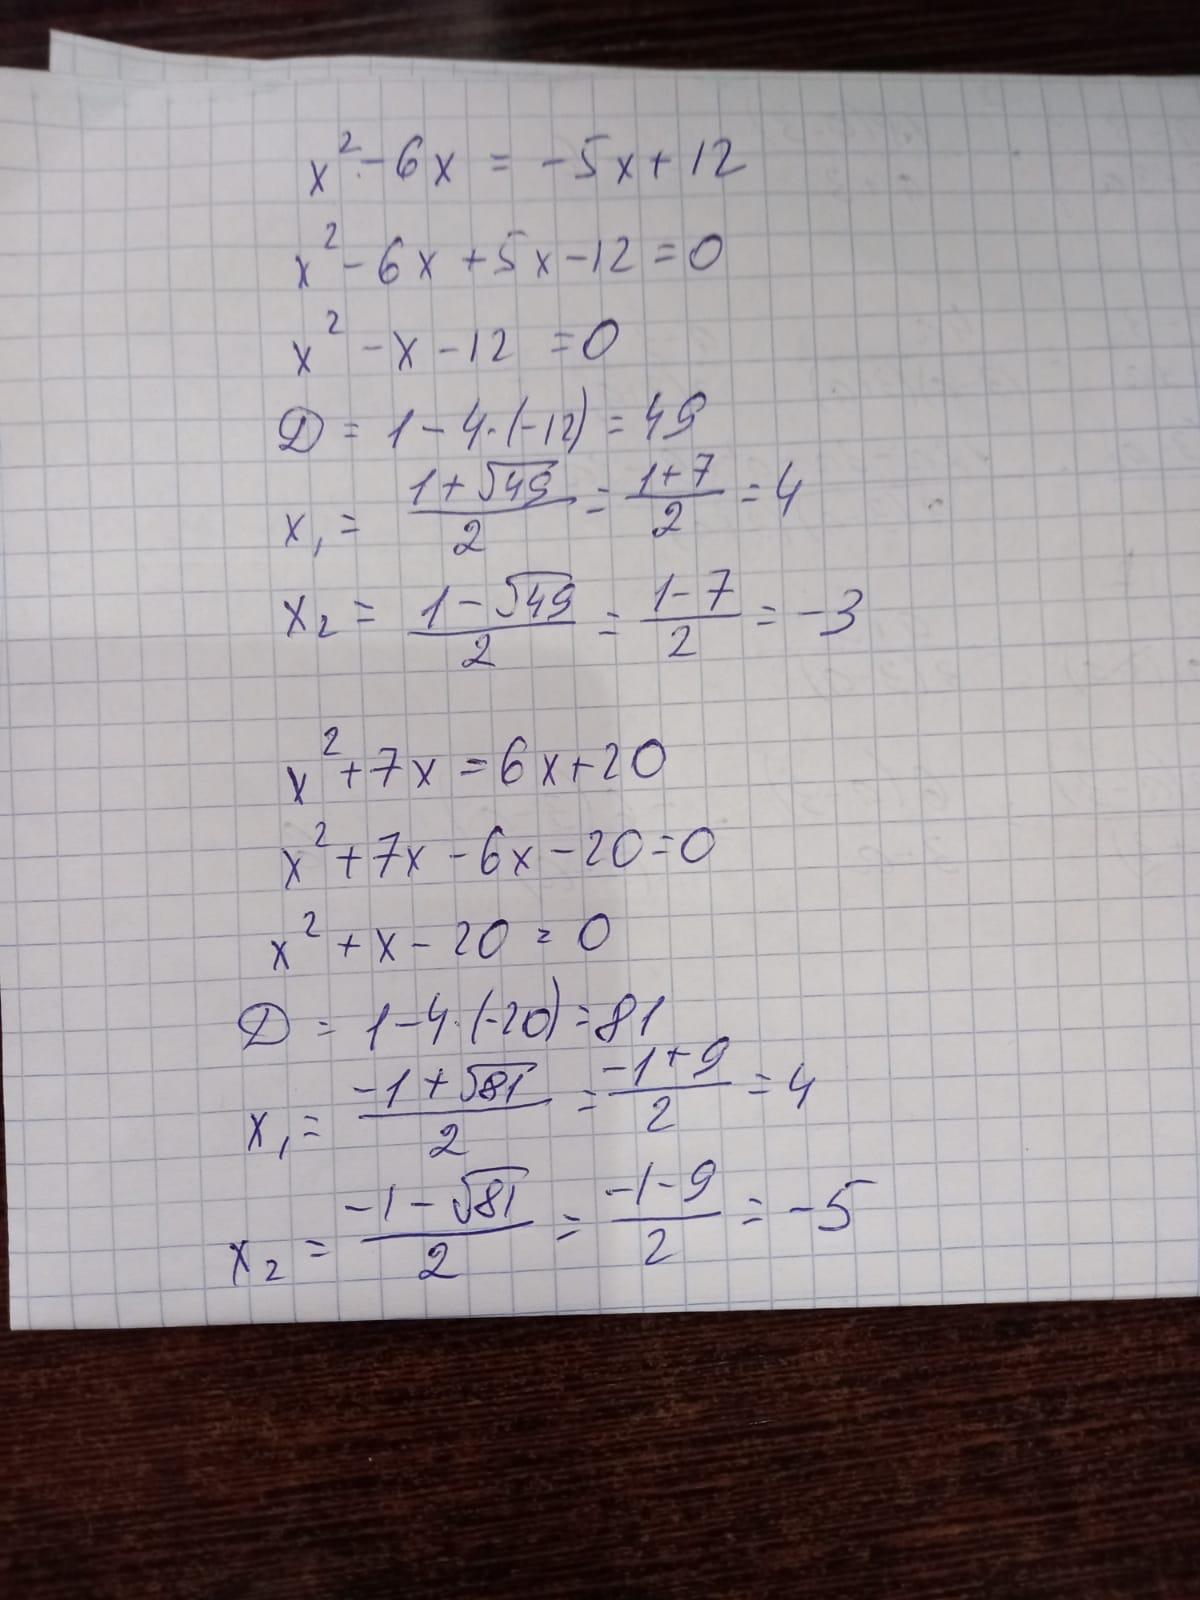 x² - 6x = -5x + 12
x² - 6x + 5x - 12 = 0
x² - x - 12 = 0
D = 1 - 4·(-12) = 49
x₁ = (1 + √49)/2 = (1 + 7)/2 = 4
x₂ = (1 - √49)/2 = (1 - 7)/2 = -3
x² + 7x = 6x + 20
x² + 7x - 6x - 20 = 0
x² + x - 20 = 0
D = 1 - 4·(-20) = 81
x₁ = (-1 + √81)/2 = (-1 + 9)/2 = 4
x₂ = (-1 - √81)/2 = (-1 - 9)/2 = -5